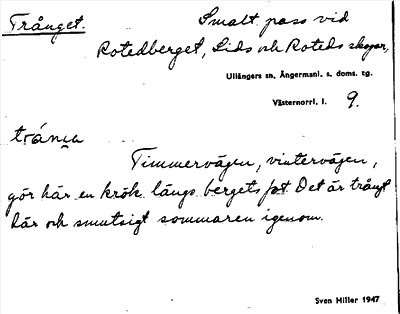 Trånget. Smalt pass vid
Rotedberget, Lids och Roteds skogar,
Ullångers sn, Ångermanl. s. doms. tg.
Västernorrl. l. 9.
tråŋa
Timmervägen, vintervägen,
gör här en krök längs bergets fot. Det är trångt
här och smutsigt sommaren igenom.
Sven Hiller 1947